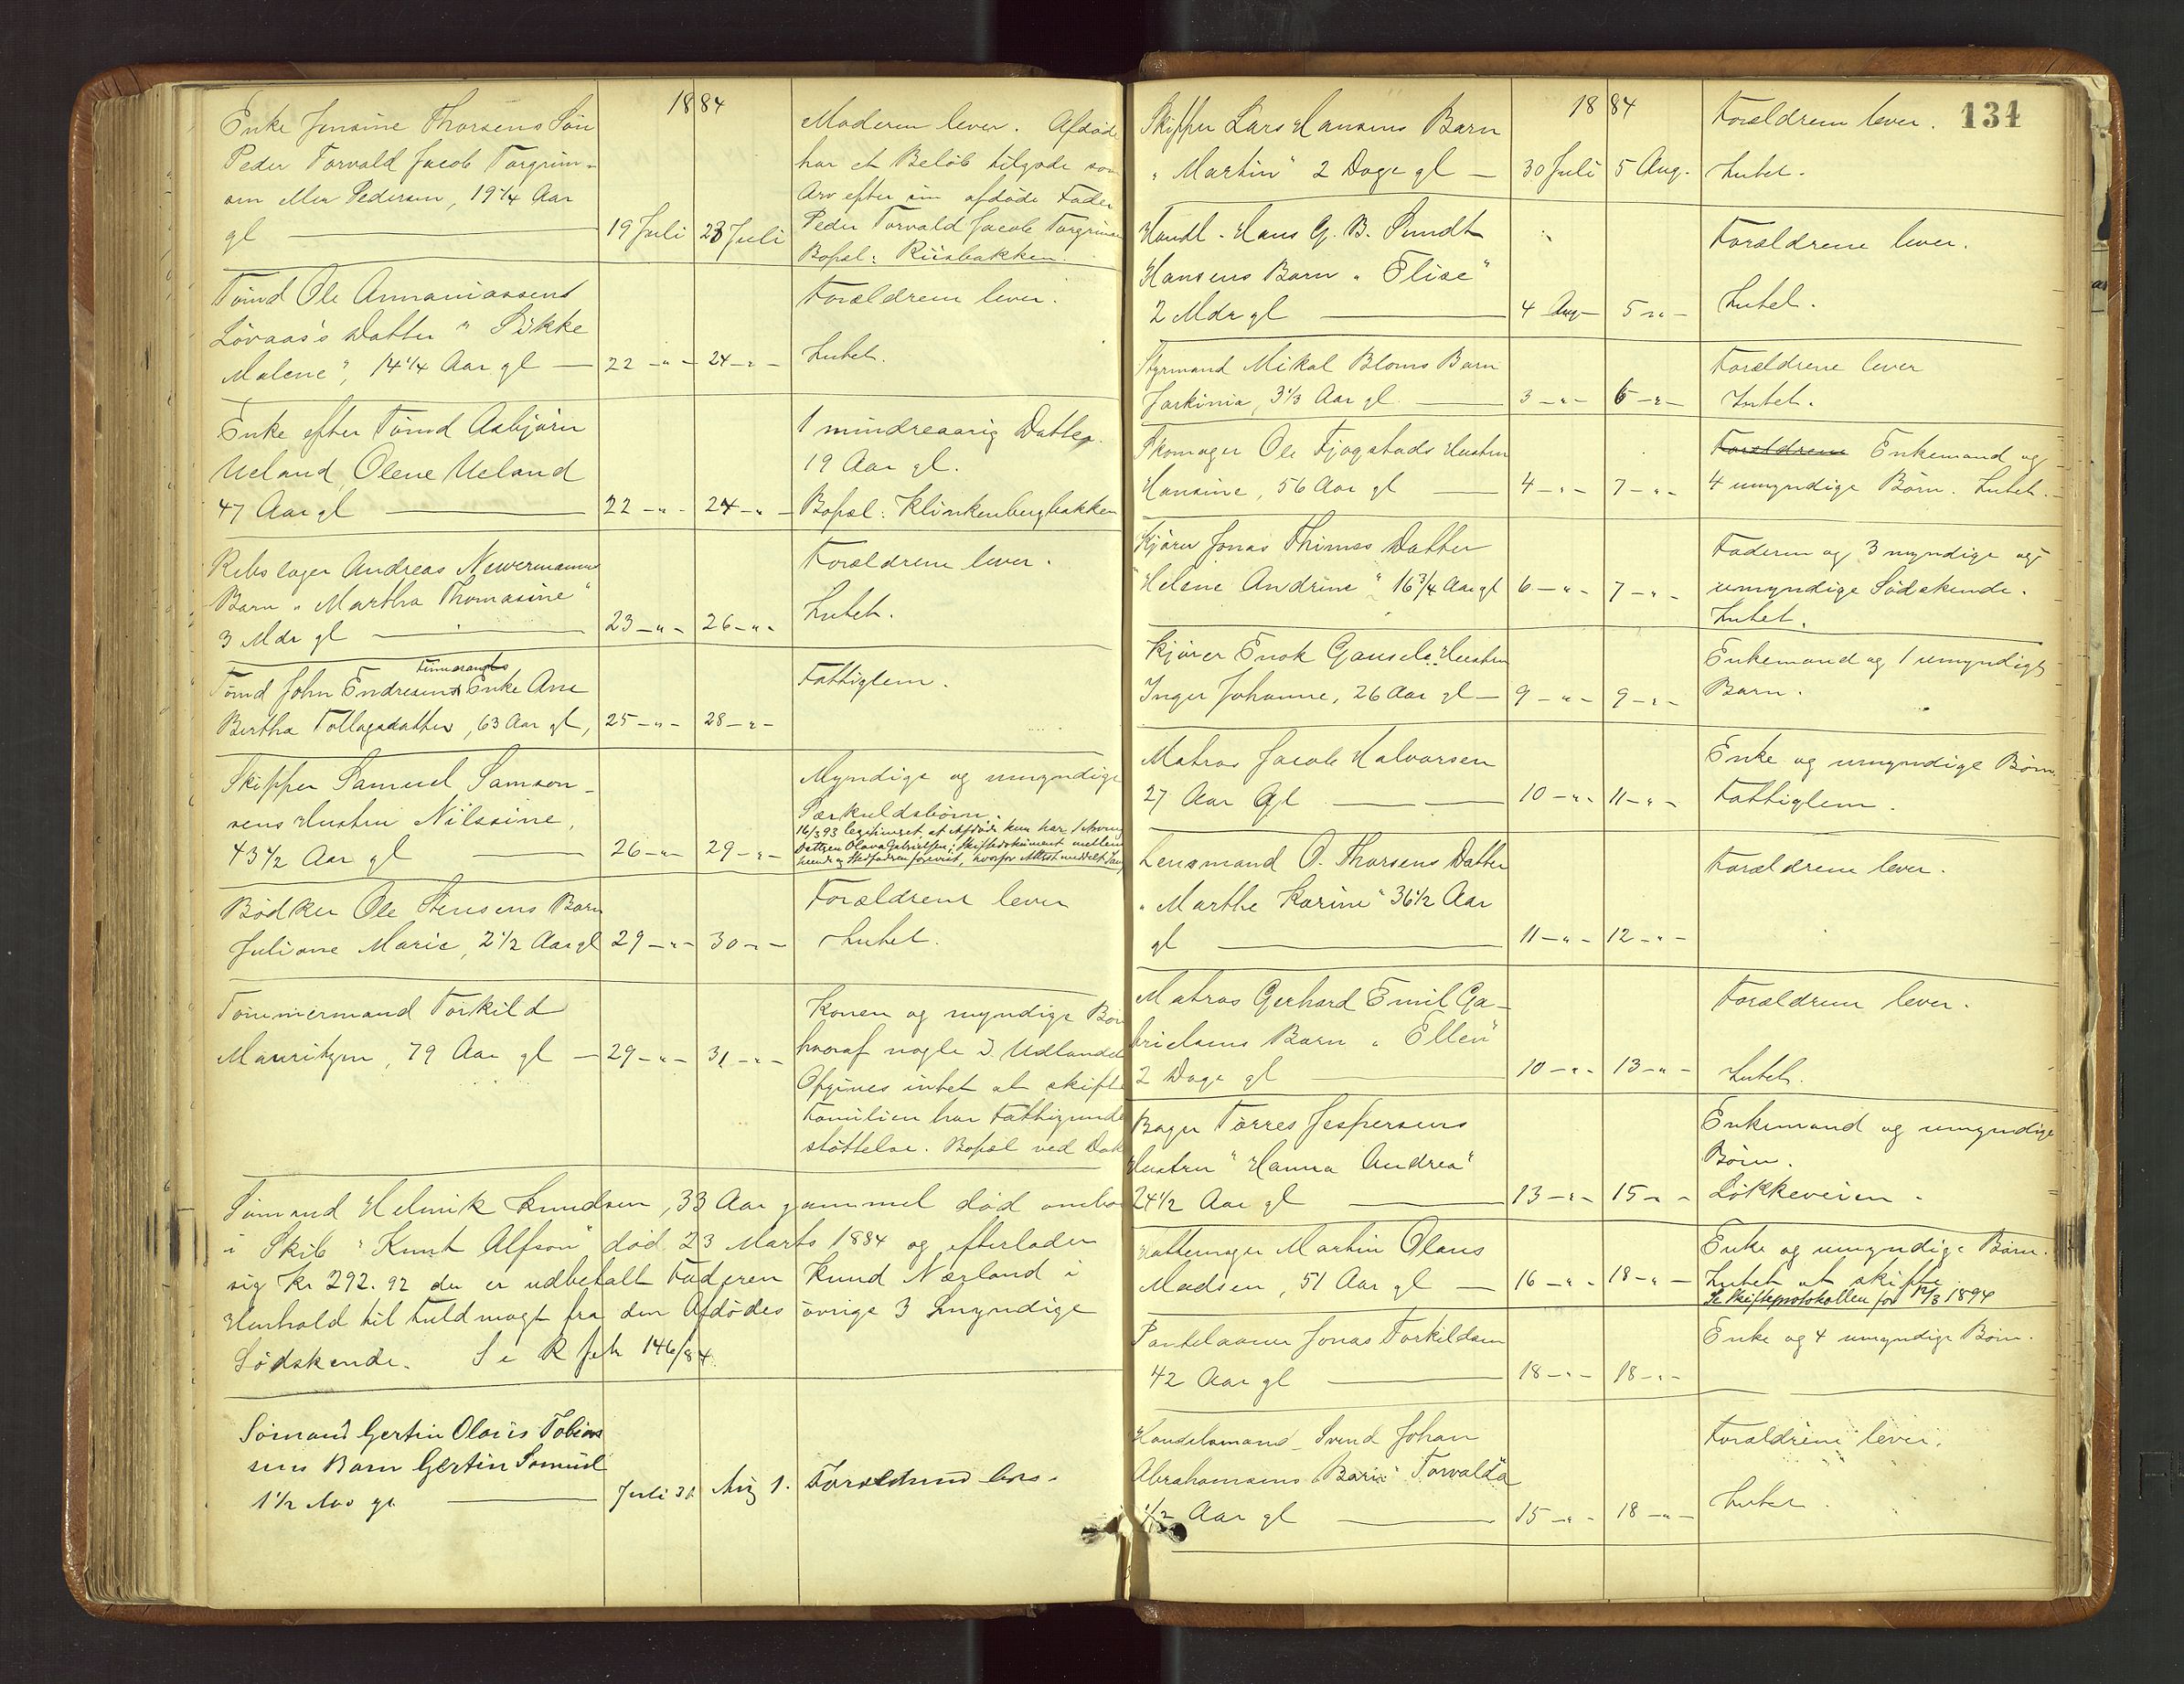 1884
Enke Jensine Thorsens Søn
Peder Torvald Jacob Torgrim-
sen eller Pedersen, 19 1/4 Aar
gl — 19 Juli 23 Juli
Moderen lever. Afdøde
har et Beløb tilgode som
Arv efter sin afdøde Fader
Peder Torvald Jacob Torgrimsen
Bopæl: Riisbakken.
Tømd Ole Annaniassens
Løvaas's Datter "Sikke
Malene", 14 1/4 Aar gl — 22 —"— 24 —"—
Forældrene lever.
Intet.
Enke efter Tømd Asbjørn
Ueland, Olene Ueland
47 Aar gl — 22 —"— 24 —"—
1 mindreaarig Datter
19 Aar gl.
Bopæl: Klinkenbergbakken
Rebslager Andreas Newermanns
Barn "Martha Thomasine"
3 Mdr gl — 23 —"— 26 —"—
Forældrene lever.
Intet.
Tømd John Endresens Enke Ane
Bertha Tollagsdatter, 63 Aar gl, 25 —"— 28 —"—
Fattiglem.
Skipper Samuel Samson-
sens Hustru Nilssine,
43 1/2 Aar gl — 26 —"— 29 —"—
Myndige og umyndige
Særkuldsbørn.
16/3 93 legitimeret, at Afdøde kun har 1 Arving
Datteren Olava Gabrielsen; Skiftedokument mellem
hende og Stedfaderen forevist, hvorfor Attest meddelt
Bødker Ole Stensens Barn
Juliane Marie, 2 1/2 Aar gl 29 —"— 30 —"—
Forældrene lever
Intet.
Tømmermand Torkild
Mauritzen, 79 Aar gl — 29 —"— 31 —"—
Konen og myndige Børn
hvoraf nogle i Udlandet
Opgives intet at skifte
Familien har Fattigunder
støttelse. Bopæl ved Dok
Sømand Helmik Knudsen, 33 Aar gammel død ombord
i Skib "Knut Alfson" død 23 Marts 1884 og efterlader
sig Kr 292.92 der er udbetalt Faderen Knud Nærland i
Henhold til Fuldmagt fra den Afdødes øvrige 3 Smyndige
Sødskende. Se R Jek 146/84.
Sømand Gertin Olaus Tobias
sens Barn Gertin Somuel
1 1/2 Aar gl — Juli 31 Aug 1. Forældrene leve.
134
1884
Skipper Lars Hansens Barn
"Martin" 2 Dage gl — 30 Juli 5 Aug.
Forældrene lever.
Intet.
Handl. Hans G. B. Sundt
Hansens Barn "Elise"
2 Mdr gl — 4 Aug 5 —"—
Forældrene lever.
Intet.
Styrmand Mikal Bloms Barn
Jorkinia, 3 1/3 Aar gl — 3 —"— 6 —"—
Forældrene lever
Intet.
Skomager Ole Fjogstads Hustru
Hansine, 56 Aar gl — 4 —"— 7 —"—
Forældrene Enkemand og
4 umyndige Børn. Intet.
Kjører Jonas Thimes Datter
"Helene Andrine" 16 3/4 Aar gl 6 —"— 7 —"—
Faderen og 3 myndige og
umyndige Sødskende.
Intet.
Kjører Enok Gausels Hustru
Inger Johanne, 26 Aar gl — 9 —"— 9 —"—
Enkemand og 1 umyndigt
Barn.
Matros Jacob Halvorsen
27 Aar Gl — 10 —"— 11 —"—
Enke og umyndige Børn
Fattiglem.
Lensmand O. Thorsens Datter
"Marthe Karine" 36 1/2 Aar
gl — 11 —"— 12 —"—
Forældrene lever.
Matros Gerhard Emil Ga-
brielsens Barn "Ellen"
2 Dage gl — 10 —"— 13 —"—
Forældrene lever.
Intet.
Bager Tørres Jespersens
Hustru "Hanna Andrea"
24 1/2 Aar gl — 13 —"— 15 —"—
Enkemand og umyndige
Børn.
Løkkeveien.
Hattemager Martin Olaus
Madsen, 51 Aar gl — 16 —"— 18 —"—
Enke og umyndige Børn.
Intet at skifte
Se Skifteprotokollen for 12/3 1894
Pantelaaner Jonas Torkildsen
42 Aar gl — 18 —"— 18 —"—
Enke og 4 umyndige Børn.
Handelsmand Svend Johan
Abrahamsens Barn "Torvalda
1/2 Aar gl — 15 —"— 18 —"—
Forældrene lever.
Intet.